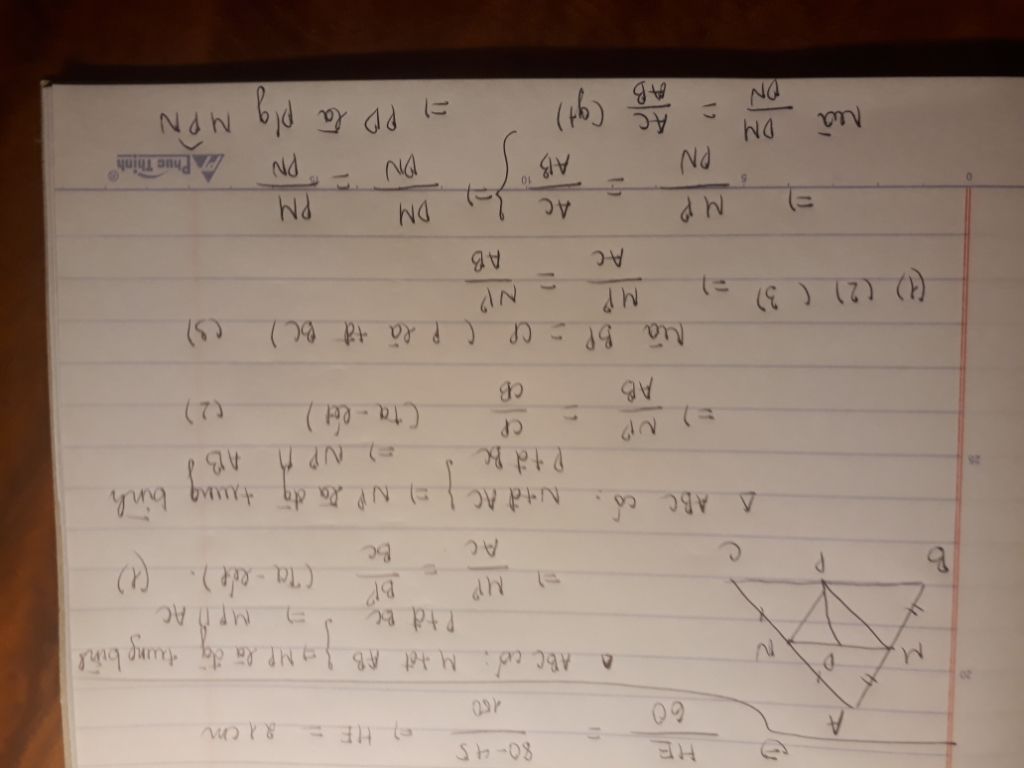 =) HE/60 = 80-45/100 =) HE = 21 cm
A
M
D
N
B
P
C
Δ ABC có: M tđ AB
P tđ BC } => MP là đg trung bình
=) MP // AC
=) MP/AC = BP/BC (Ta-lét). (1)
Δ ABC có: N tđ AC
P tđ BC } =) NP là đg trung bình
=) NP // AB
=) NP/AB = CP/CB (Ta-lét) (2)
Mà BP = CP ( P là tđ BC) (3)
(1) (2) (3) =) MP/AC = NP/AB
=) MP/PN = AC/AB
Mà DM/DN = AC/AB (gt) } =) DM/DN = PM/PN
=) PD là p/g MPN
Phuc Thinh®
0 5 10 15
25
20